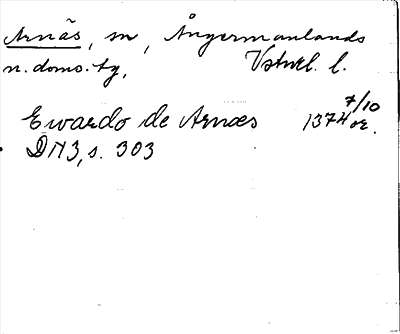 Arnäs, sn, Ångermanlands
n. doms. tg, Vstnrl. l.
Ewardo de Arnæs 1374 7/10 or.
DN3, s. 303